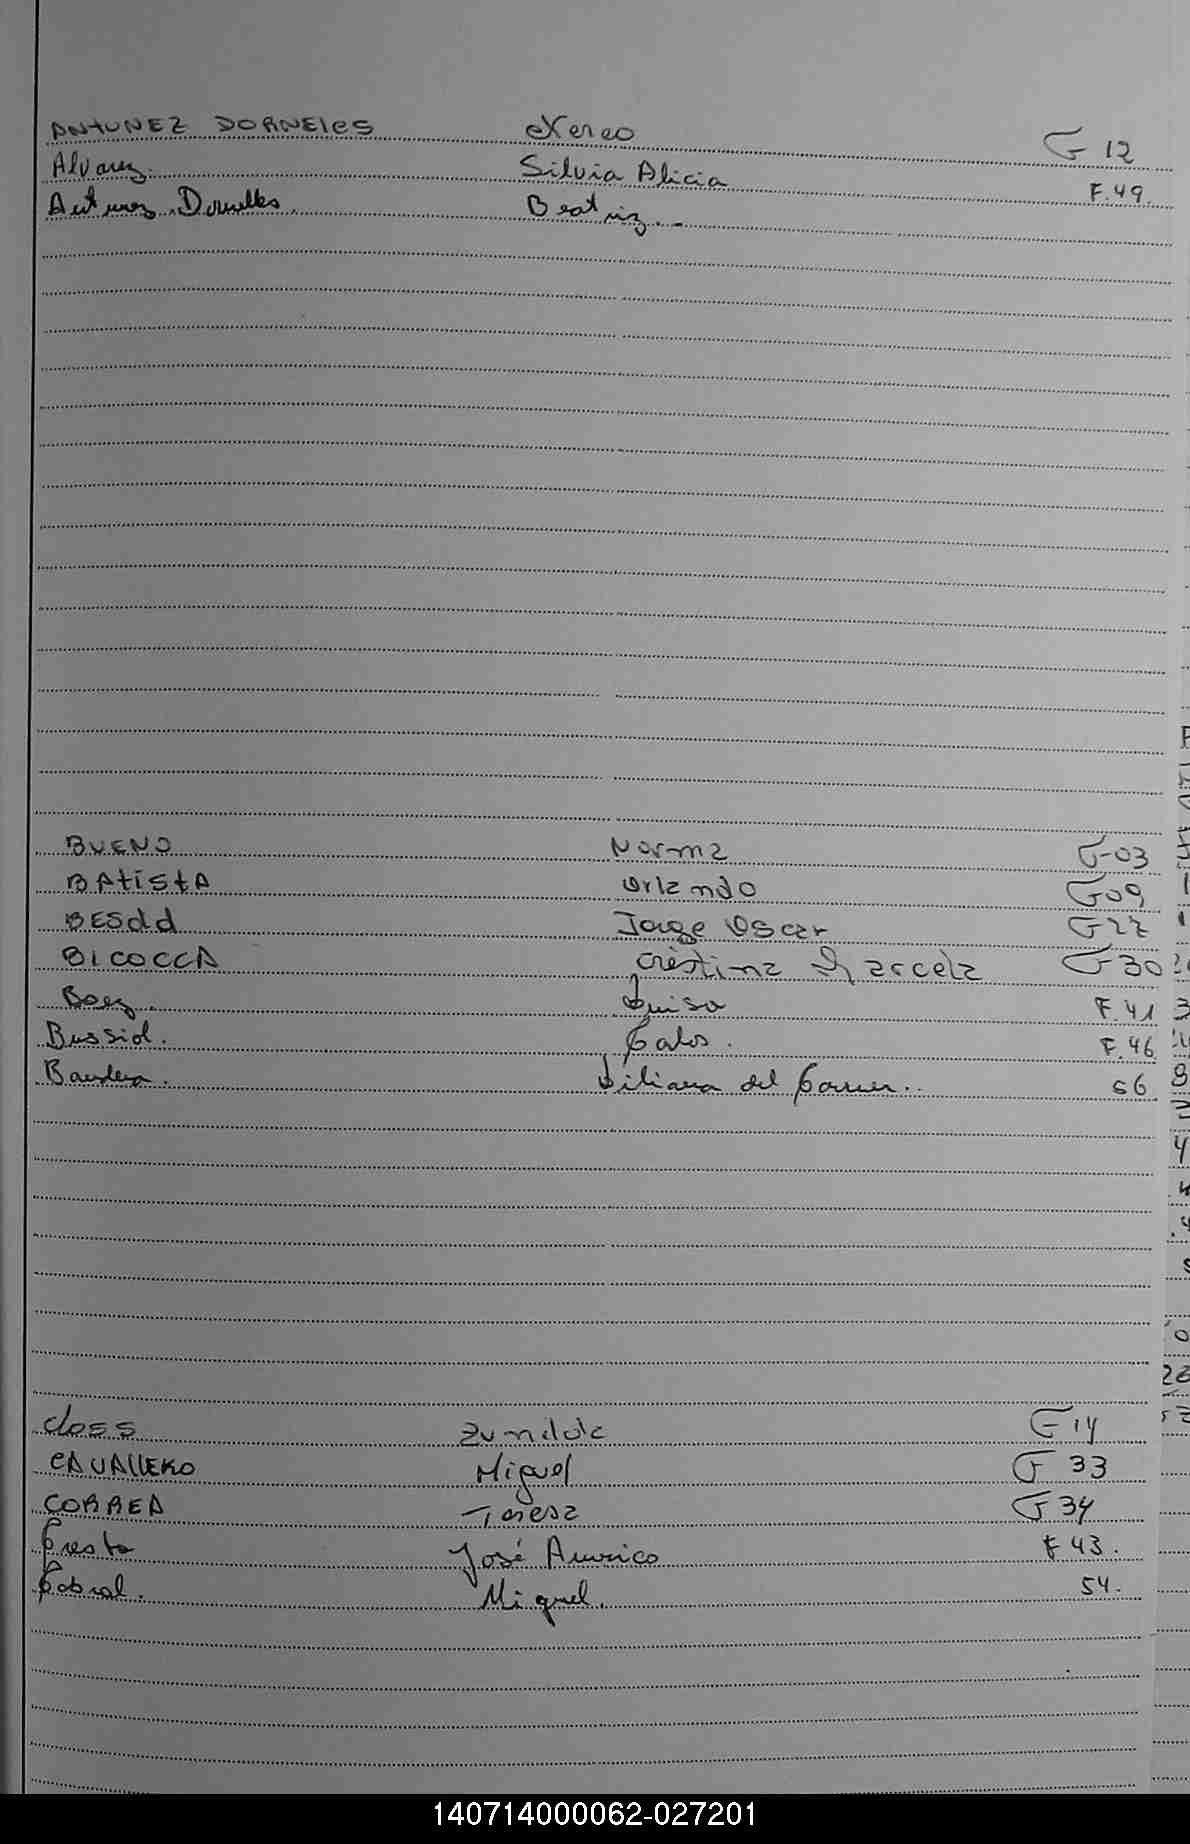 ANTUNEZ DORNEles Nereo F 12
Alvarez. Silvia Alicia F.49.
Antunez Dornelles Beatriz.
BUENO Norma F-03
BAtistA Orlando F09
BESdd Jorge Oscar F27
BICOCCA Cristina Marcela F30
Baez. Luisa F.41
Bussiol. Calos. F.46
Bandera. Liliana del Carmen.. 56
closs F14
CAVAllERO Miguel F 33
CORREA Teresa F 34
José Americo F 43.
Cabral. Miguel. 54.
140714000062-027201